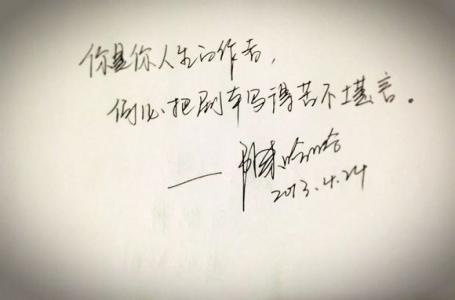 你是你人生的作者，
何必把剧本写得苦不堪言。
——陈哈哈
2013.4.24